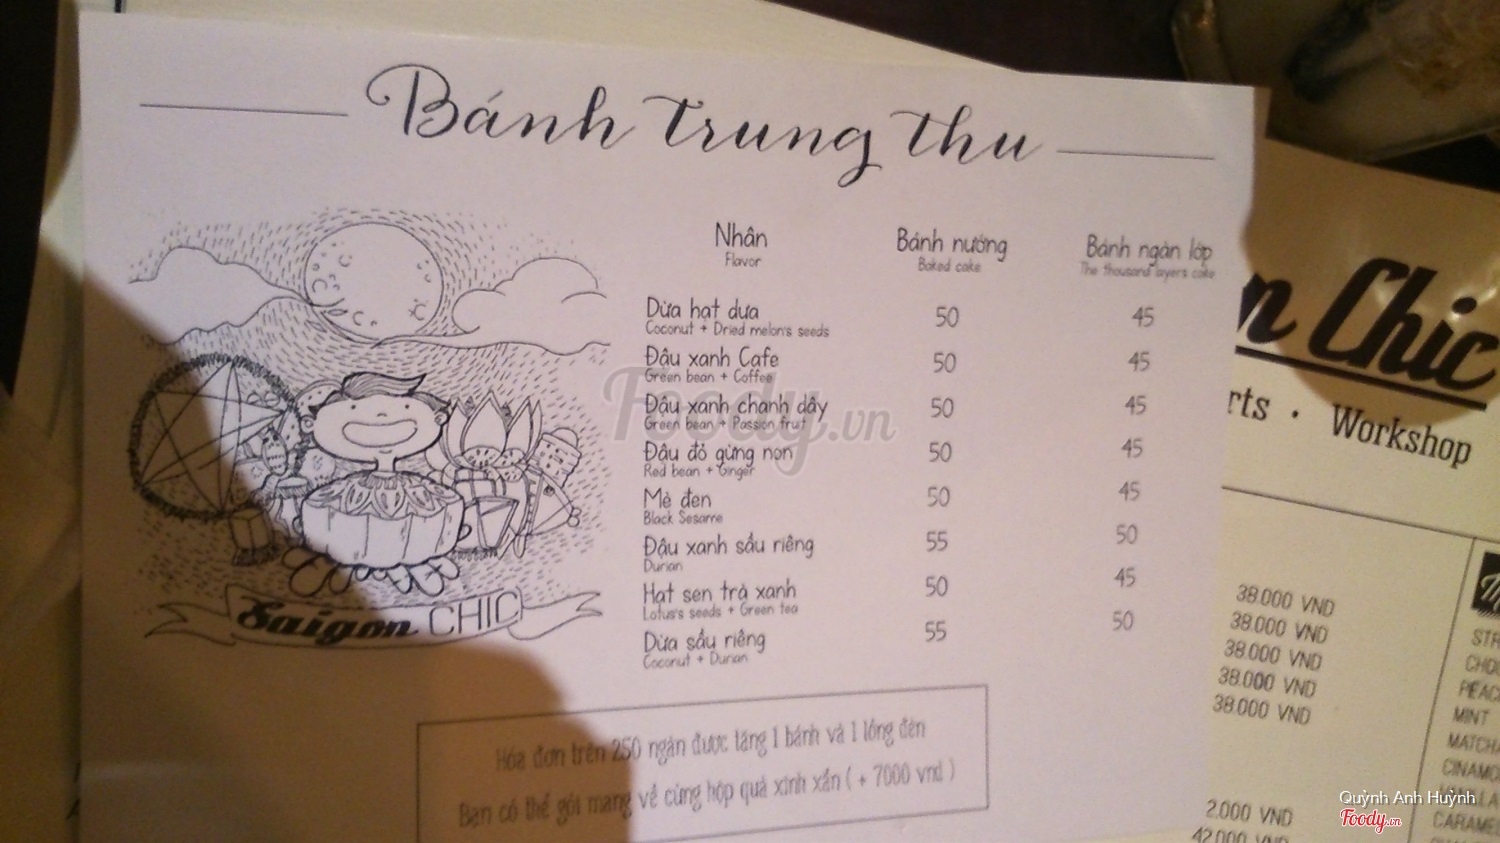 Bánh trung thu
Nhân Bánh nướng Bánh ngàn lớp
Flavor Baked cake The thousand layers cake
Dừa hạt dưa 50 45
Coconut + Dried melon's seeds
Đậu xanh Cafe 50 45
Green bean + Coffee
Đậu xanh chanh dây 50 45
Green bean + Passion fruit
Đậu đỏ gừng non 50 45
Red bean + Ginger
Mè đen 50 45
Black Sesame
Đậu xanh sầu riêng 55 50
Durian
Hạt sen trà xanh 50 45
Lotus's seeds + Green tea
Dừa sầu riêng 55 50
Coconut + Durian
Saigon CHIC
Hóa đơn trên 250 ngàn được tặng 1 bánh và 1 lồng đèn
Bạn có thể gói mang về cùng hộp quà xinh xắn ( + 7000 vnd )
Foody.vn
n Chic
rts · Workshop
38.000 VND
38.000 VND
38.000 VND
38.000 VND
38.000 VND
2.000 VND
42.000 VND
STR
CHO
PEAC
MINT
MATCHA
CINAMO
CARAME
Quỳnh Anh Huỳnh
Foody.vn